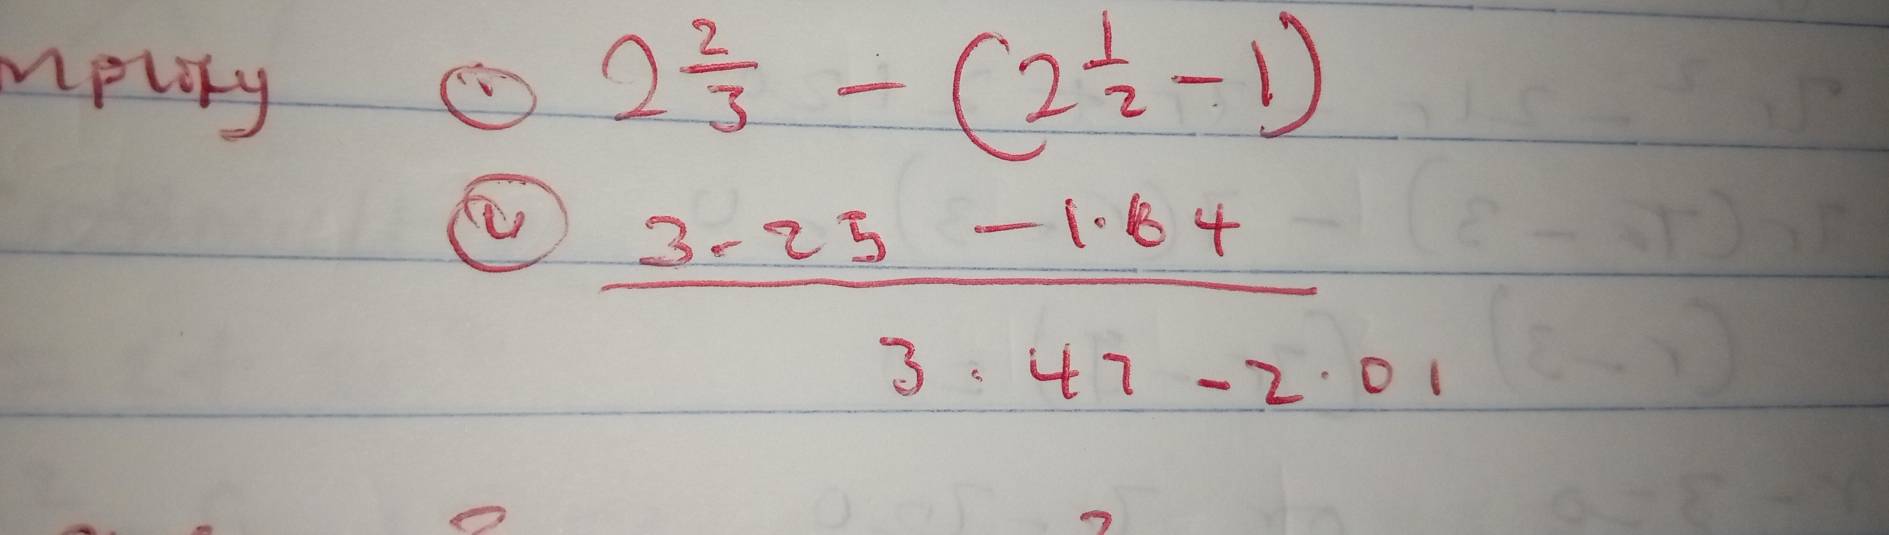 mplify (i) 2 2/3 - (2 1/2 - 1)
(ii) 3.25 - 1.64
3.47 - 2.01